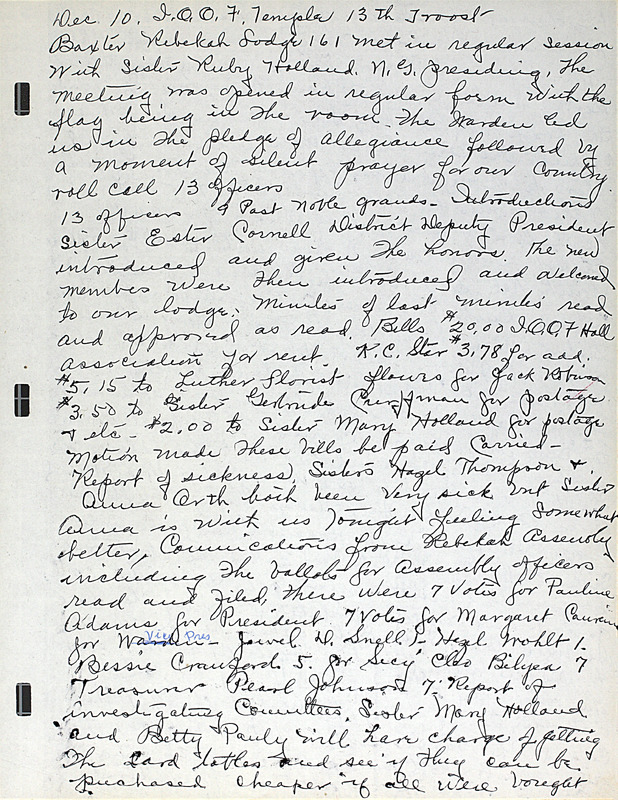 Dec 10. I.O.O.F. Temple 13th Troost
Baxter Rebekah Lodge 161 met in regular session
with Sister Ruby Holland. N.G. presiding, The
meeting was opened in regular form with the
flag being in the room. The Warden led
us in The pledge of allegiance followed by
a moment of silent prayer for our Country.
roll call 13 officers
13 officers 9 Past noble grands - Introductions
Sister Ester Cornell District Deputy President
introduced and given The honors. The new
members were then introduced and welcomed
to our lodge. Minutes of last minutes read
and approved as read. Bills $20.00 I.O.O.F Hall
association for rent. K.C. Star $3.78 for add.
$5.15 to Luther Florist flowers for Jack
$3.50 to Sister Gertrude for postage
& etc - $2.00 to Sister Mary Holland for postage
Motion made These bills be paid Carried -
Report of sickness, Sisters Hazel Thompson &
Anna Orth both been very sick but Sister
Anna is with us Tonight feeling somewhat
better, Comunications from Rebekah Assembly
including The ballots for Assembly officers
read and filed, there were 7 votes for Pauline
Adams for President 7 votes for Margaret
for Warden Vice Pres - Jewel D. Snell 1 - Hazel Wohlt 1.
Bessie Crawford 5. for Secy Cleo Bilyea 7
Treasurer Pearl Johnson 7. Report of
investigating Committees, Sister Mary Holland
and Betty Pauly will have charge of getting
The Card tables and see if they can be
puchased cheaper if all were bought